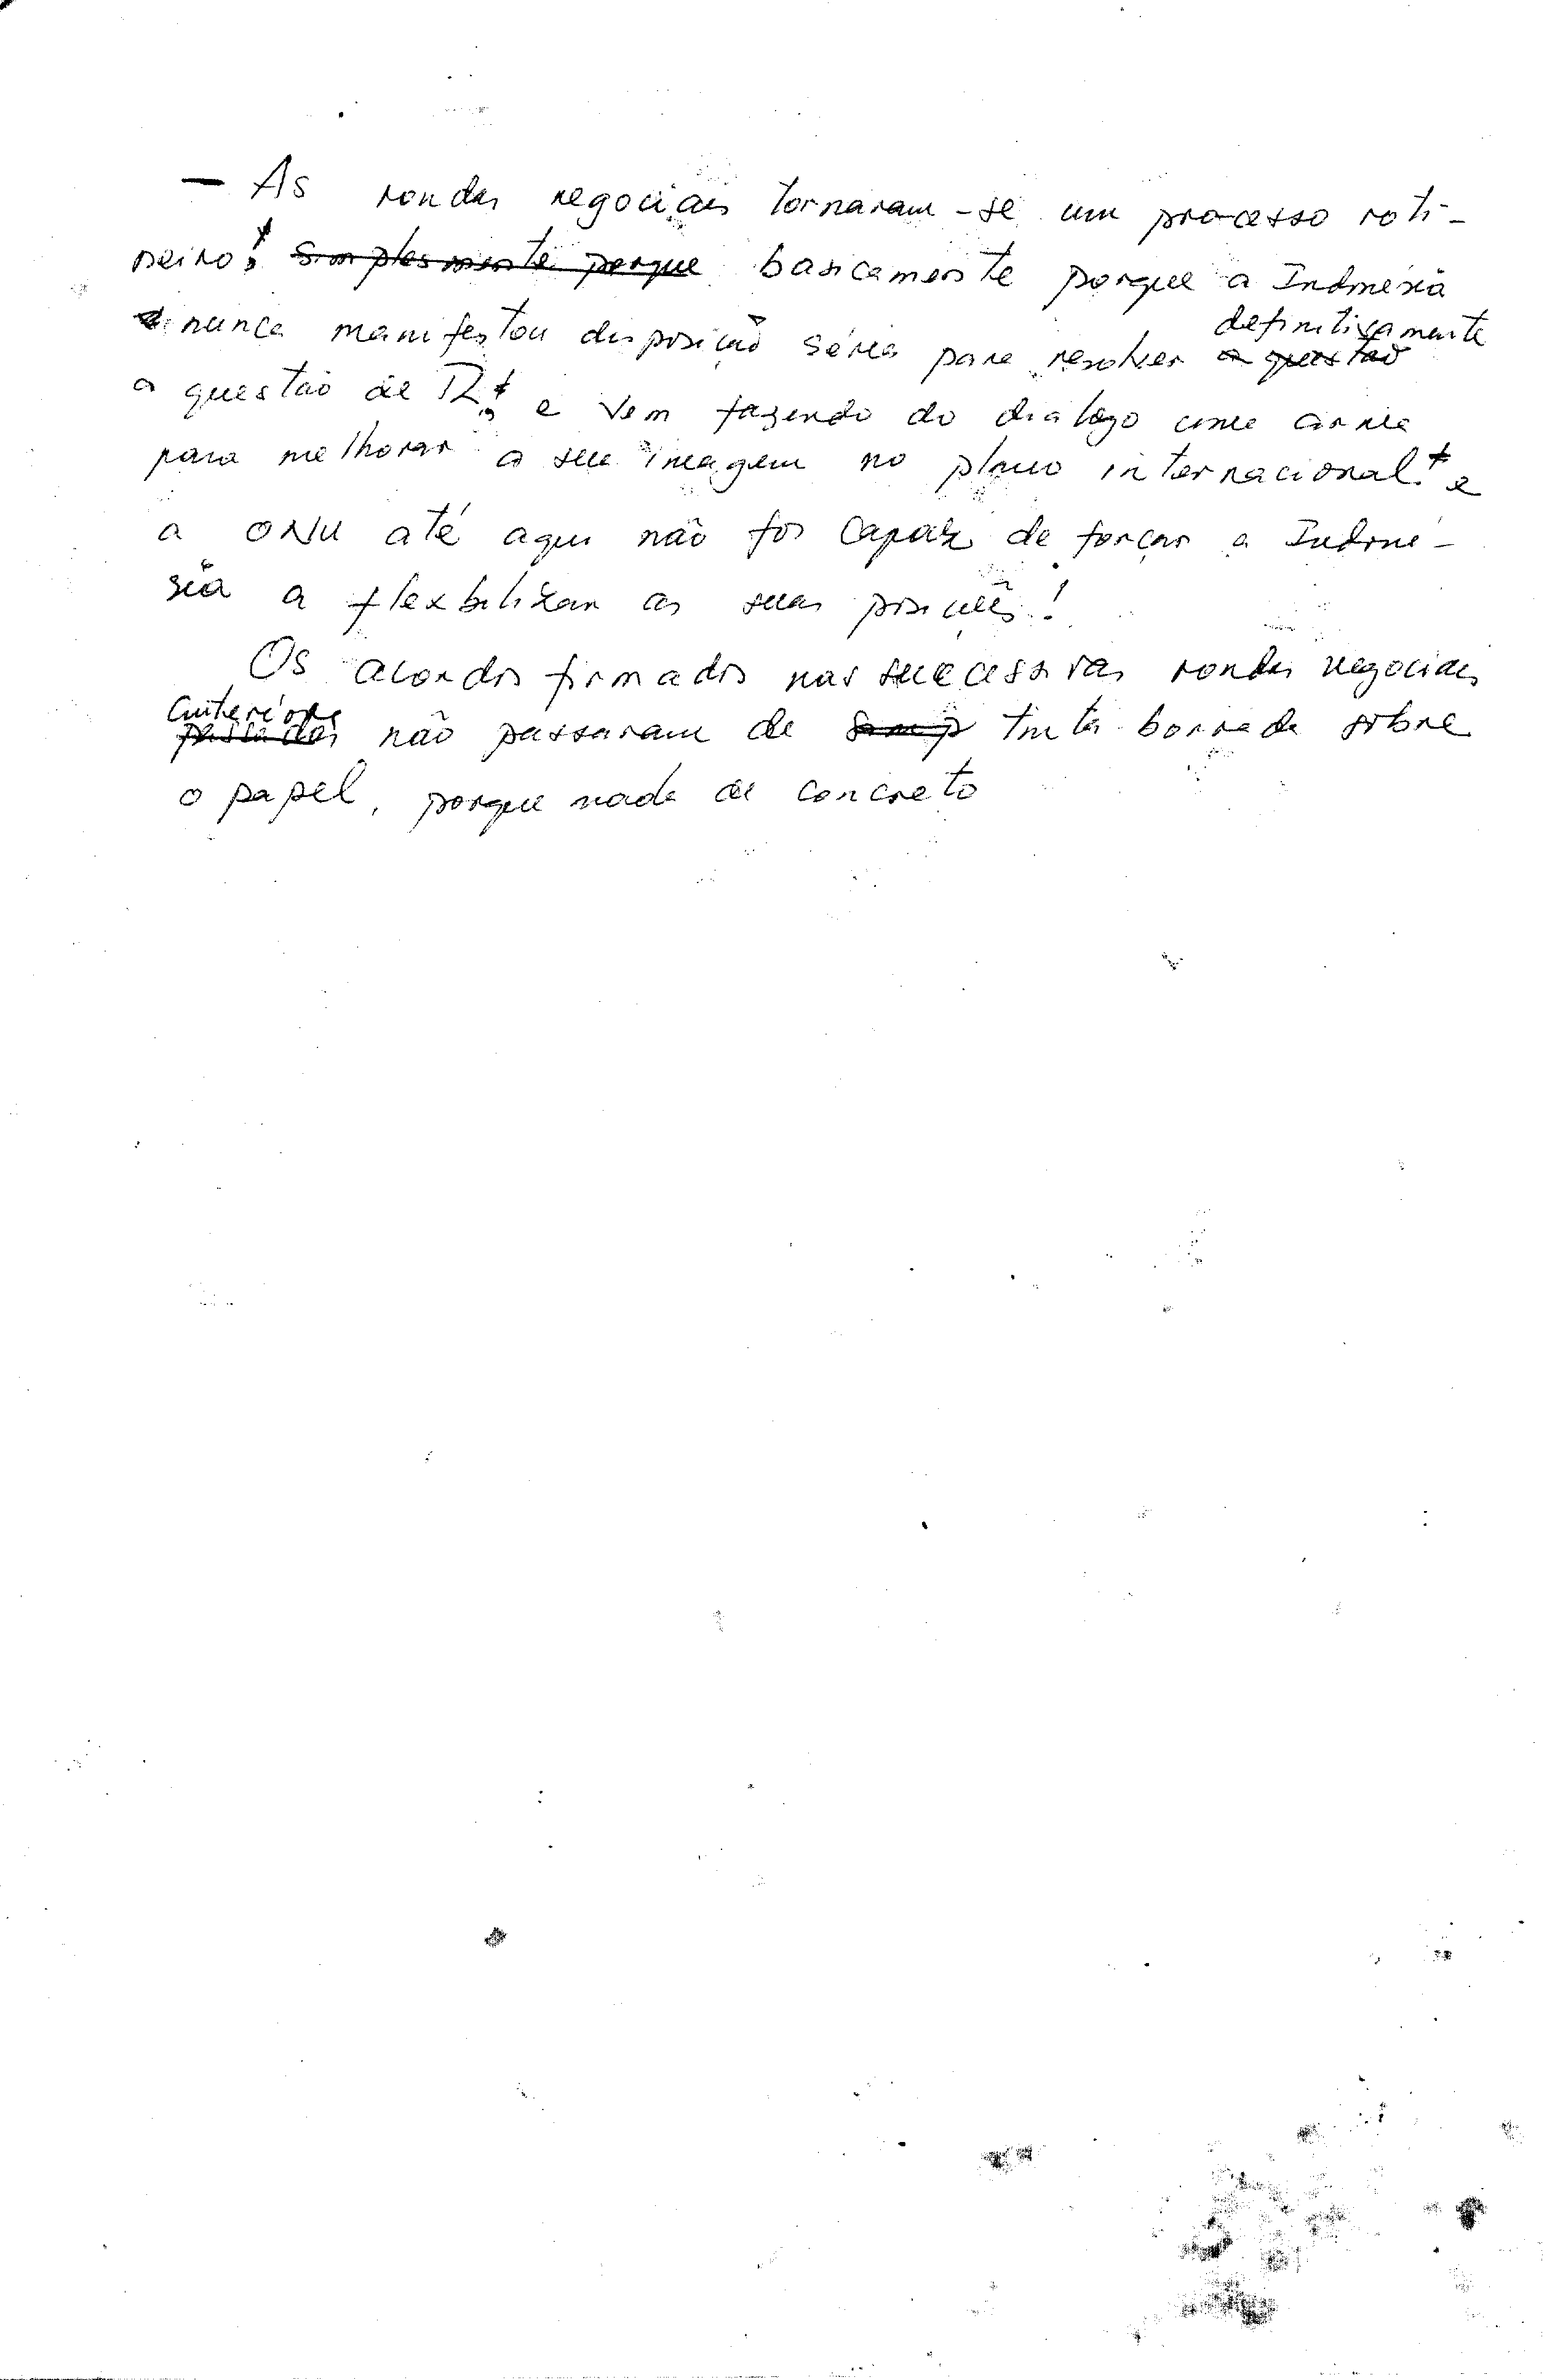 — As rondas negociais tornaram-se um processo roti-
neiro! ~~simplesmente porque~~ basicamente porque a Indonésia
nunca manifestou disposição séria para resolver ~~a questão~~ definitivamente
a questão de TL! e vem fazendo do dialogo uma arma
para melhorar a sua imagem no plano internacional! e
a ONU até aqui não foi capaz de forçar a Indoné-
sia a flexbilizar as suas posições!
Os acordos firmados nas successivas rondas negociais
~~passadas~~ anteriores não passaram de ~~simp~~ tinta borrada sobre
o papel, porque nada de concreto